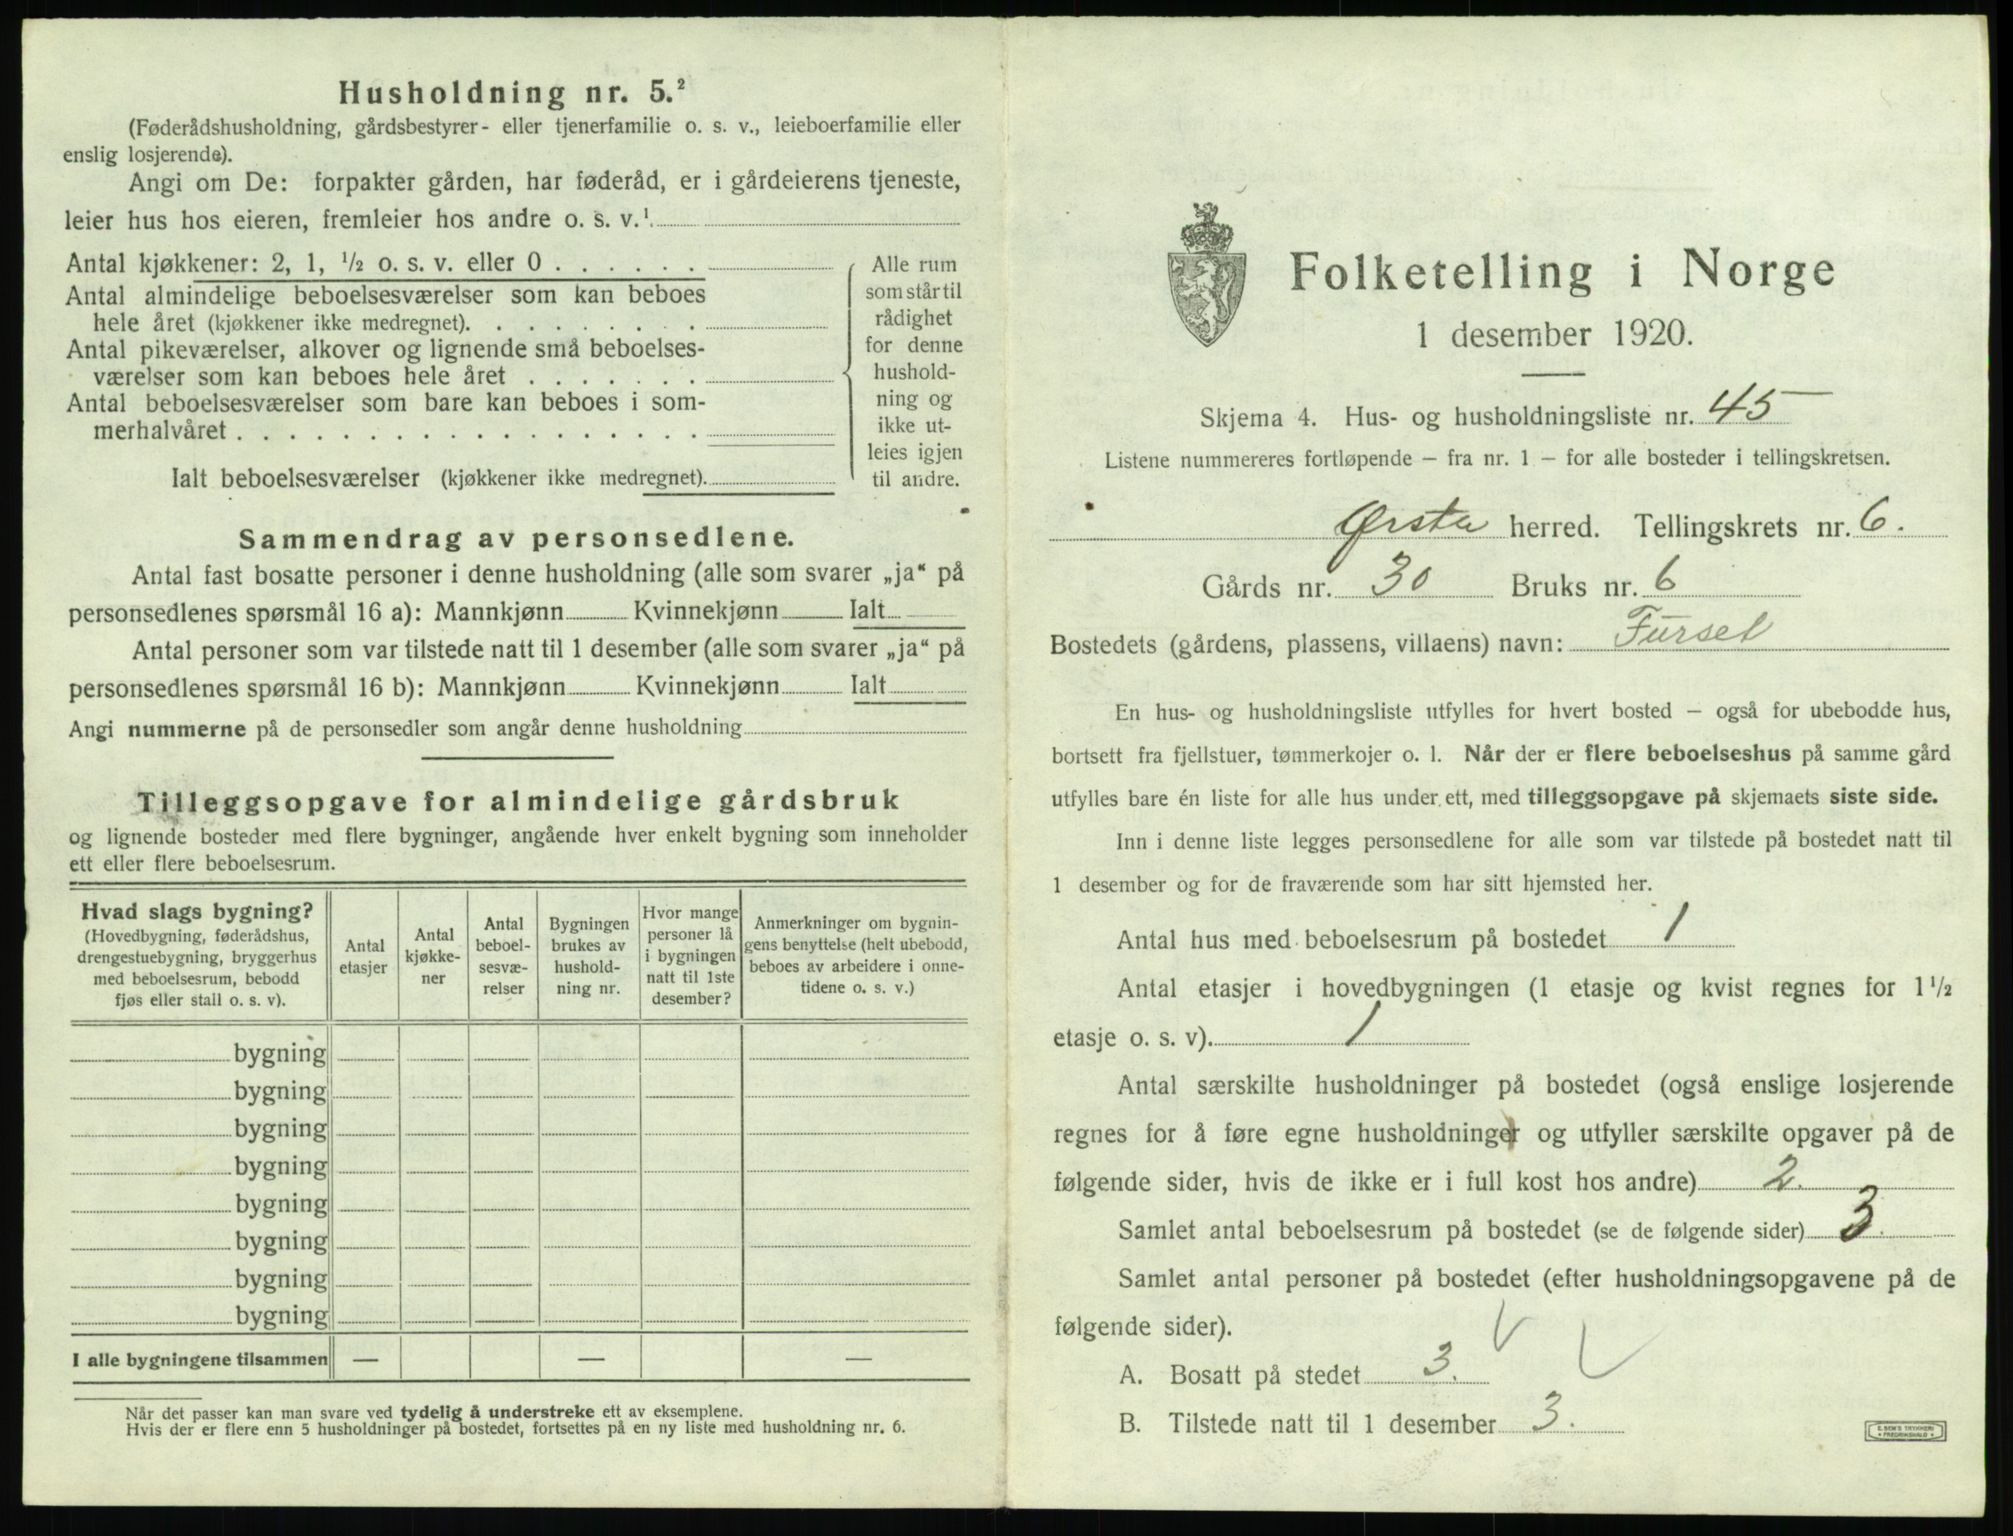 Husholdning nr. 5.²
(Føderådshusholdning, gårdsbestyrer- eller tjenerfamilie o. s. v., leieboerfamilie eller
enslig losjerende).
Angi om De: forpakter gården, har føderåd, er i gårdeierens tjeneste,
leier hus hos eieren, fremleier hos andre o. s. v.¹
Antal kjøkkener: 2, 1, ½ o. s. v. eller 0 . . . . . .
Antal almindelige beboelsesværelser som kan beboes
hele året (kjøkkener ikke medregnet). . . . . . . . .
Antal pikeværelser, alkover og lignende små beboelses-
værelser som kan beboes hele året . . . . . . .
Antal beboelsesværelser som bare kan beboes i som-
merhalvåret . . . . . . . . . . . . . . . . . .
Ialt beboelsesværelser (kjøkkener ikke medregnet).
Alle rum
som står til
rådighet
for denne
hushold-
ning og
ikke ut-
leies igjen
til andre.
Sammendrag av personsedlene.
Antal fast bosatte personer i denne husholdning (alle som svarer „ja“ på
personsedlenes spørsmål 16 a): Mannkjønn Kvinnekjønn Ialt
Antal personer som var tilstede natt til 1 desember (alle som svarer „ja“ på
personsedlenes spørsmål 16 b): Mannkjønn Kvinnekjønn Ialt
Angi nummerne på de personsedler som angår denne husholdning
Tilleggsopgave for almindelige gårdsbruk
og lignende bosteder med flere bygninger, angående hver enkelt bygning som inneholder
ett eller flere beboelsesrum.
Hvad slags bygning?
(Hovedbygning, føderådshus,
drengestuebygning, bryggerhus
med beboelsesrum, bebodd
fjøs eller stall o. s. v).
Antal
etasjer
Antal
kjøkke-
ner
Antal
beboel-
sesvæ-
relser
Bygningen
brukes av
hushold-
ning nr.
Hvor mange
personer lå
i bygningen
natt til 1ste
desember?
Anmerkninger om bygnin-
gens benyttelse (helt ubebodd,
beboes av arbeidere i onne-
tidene o. s. v.)
bygning
bygning
bygning
bygning
bygning
bygning
bygning
bygning
I alle bygningene tilsammen — — —
Når det passer kan man svare ved tydelig å understreke ett av eksemplene.
Hvis der er flere enn 5 husholdninger på bostedet, fortsettes på en ny liste med husholdning nr. 6.
Folketelling i Norge
1 desember 1920.
Skjema 4. Hus- og husholdningsliste nr. 45
Listene nummereres fortløpende – fra nr. 1 – for alle bosteder i tellingskretsen.
Ørsta herred. Tellingskrets nr. 6.
Gårds nr. 30 Bruks nr. 6
Bostedets (gårdens, plassens, villaens) navn: Furset
En hus- og husholdningsliste utfylles for hvert bosted – også for ubebodde hus,
bortsett fra fjellstuer, tømmerkojer o. l. Når der er flere beboelseshus på samme gård
utfylles bare én liste for alle hus under ett, med tilleggsopgave på skjemaets siste side.
Inn i denne liste legges personsedlene for alle som var tilstede på bostedet natt til
1 desember og for de fraværende som har sitt hjemsted her.
Antal hus med beboelsesrum på bostedet 1
Antal etasjer i hovedbygningen (1 etasje og kvist regnes for 1½
etasje o. s. v). 1
Antal særskilte husholdninger på bostedet (også enslige losjerende
regnes for å føre egne husholdninger og utfyller særskilte opgaver på de
følgende sider, hvis de ikke er i full kost hos andre) 2.
Samlet antal beboelsesrum på bostedet (se de følgende sider) 3.
Samlet antal personer på bostedet (efter husholdningsopgavene på de
følgende sider).
A. Bosatt på stedet 3.
B. Tilstede natt til 1 desember 3.